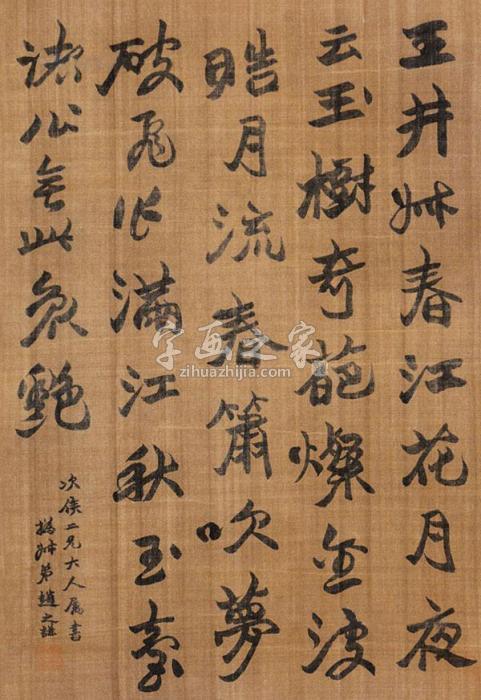 王井叔春江花月夜
云玉樹奇葩燦金波
晧月流春簫吹夢
破飛作滿江秋玉臺
諸公無此哀艷
次侯二兄大人屬書
撝叔弟趙之謙
字画之家
zihuazhijia.com